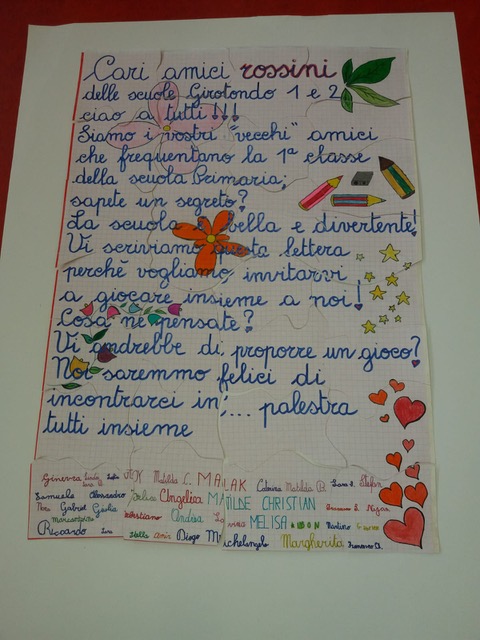 Cari amici rossini
delle scuole Girotondo 1 e 2
ciao a tutti!!!
Siamo i vostri "vecchi" amici
che frequentano la 1ª classe
della scuola Primaria;
sapete un segreto?
La scuola è bella e divertente!
Vi scriviamo questa lettera
perchè vogliamo invitarvi
a giocare insieme a noi!
Cosa ne pensate?
Vi andrebbe di proporre un gioco?
Noi saremmo felici di
incontrarci in.... palestra
tutti insieme
Ginevra Matilda C. MALAK Caterina Matilda B. Sara S. Stefan
Samuele Alessandro Angelica MATILDE CHRISTIAN
Gabriel Giulia Sebastiano Andrea MELISA Martino
Riccardo Diego Michelangelo Margherita Francesco B.